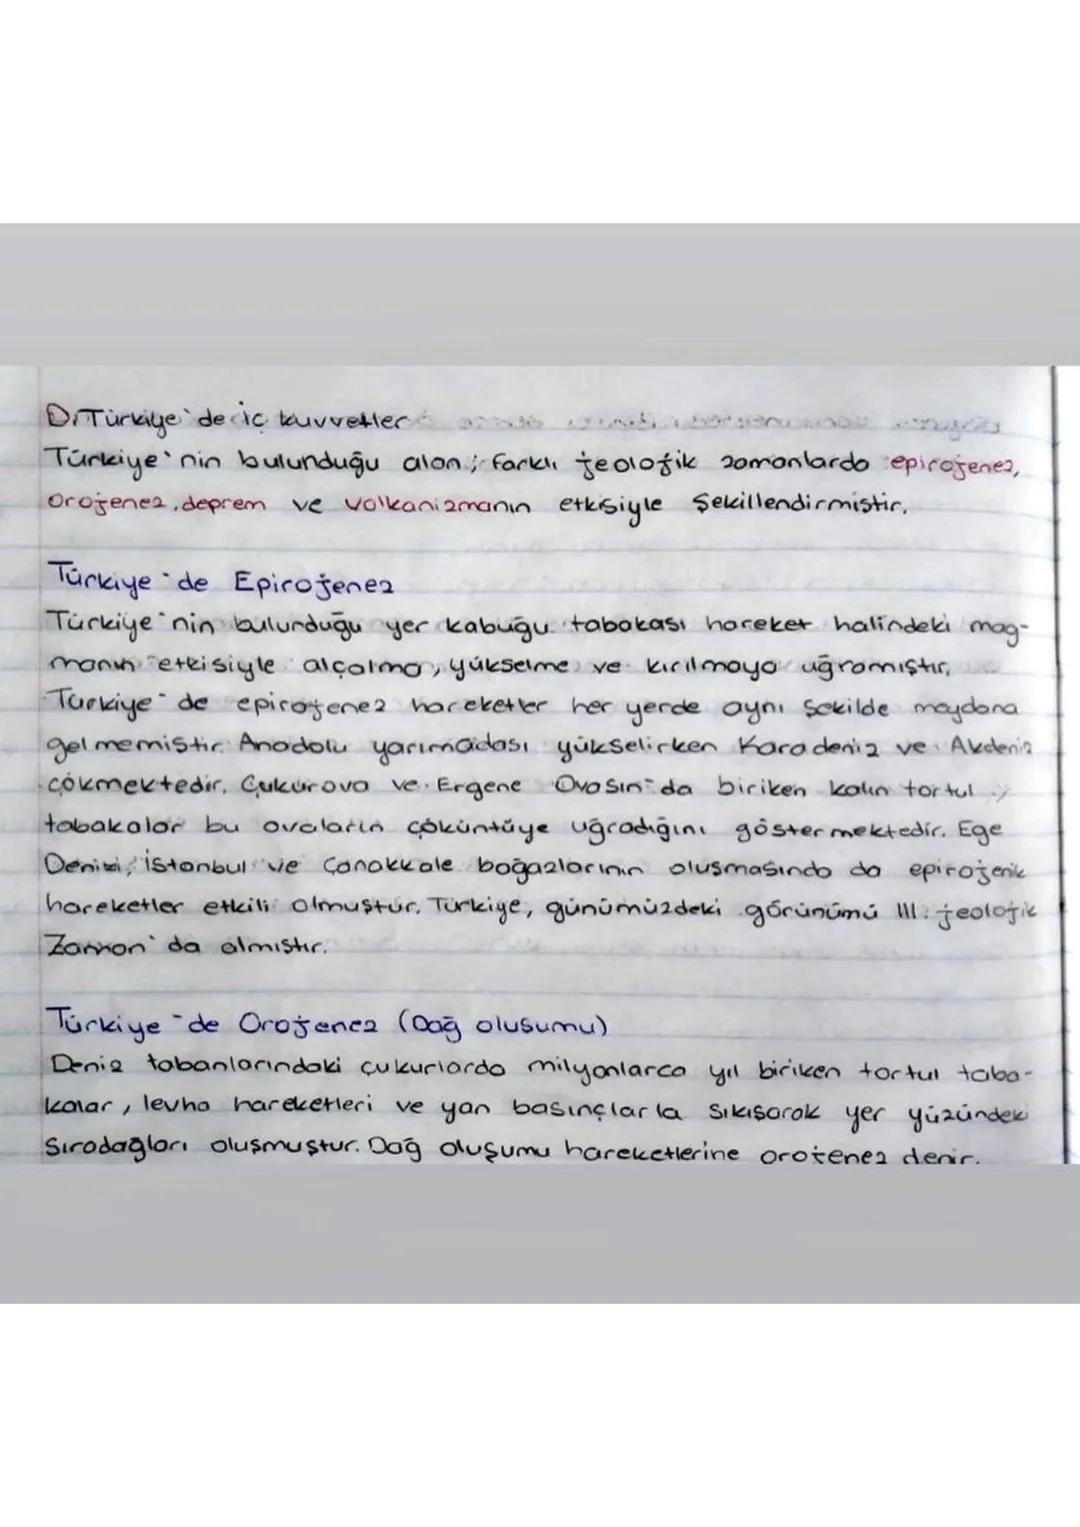 D. Türkiye'de iç kuvvetler
Türkiye'nin bulunduğu alan; farklı jeolojik zamanlarda epirojenez,
orojenez, deprem ve volkanizmanın etkisiyle şekillendirmiştir.
Türkiye'de Epirojenez
Türkiye'nin bulunduğu yer kabuğu tabakası hareket halindeki mag-
manın etkisiyle alçalma, yükselme ve kırılmaya uğramıştır.
Türkiye'de epirojenez hareketler her yerde aynı şekilde meydana
gelmemiştir. Anadolu yarımadası yükselirken Karadeniz ve Akdeniz
çökmektedir. Çukurova ve Ergene Ovasın'da biriken kalın tortul
tabakalar bu ovaların çöküntüye uğradığını göstermektedir. Ege
Denizi, İstanbul ve Çanakkale boğazlarının oluşmasında da epirojenik
hareketler etkili olmuştur. Türkiye, günümüzdeki görünümü III. jeolojik
Zaman'da almıştır.
Türkiye'de Orojenez (Dağ oluşumu)
Deniz tabanlarındaki çukurlarda milyonlarca yıl biriken tortul taba-
kalar, levha hareketleri ve yan basınçlarla sıkışarak yer yüzündeki
Sıradağları oluşmuştur. Dağ oluşumu hareketlerine orojenez denir.